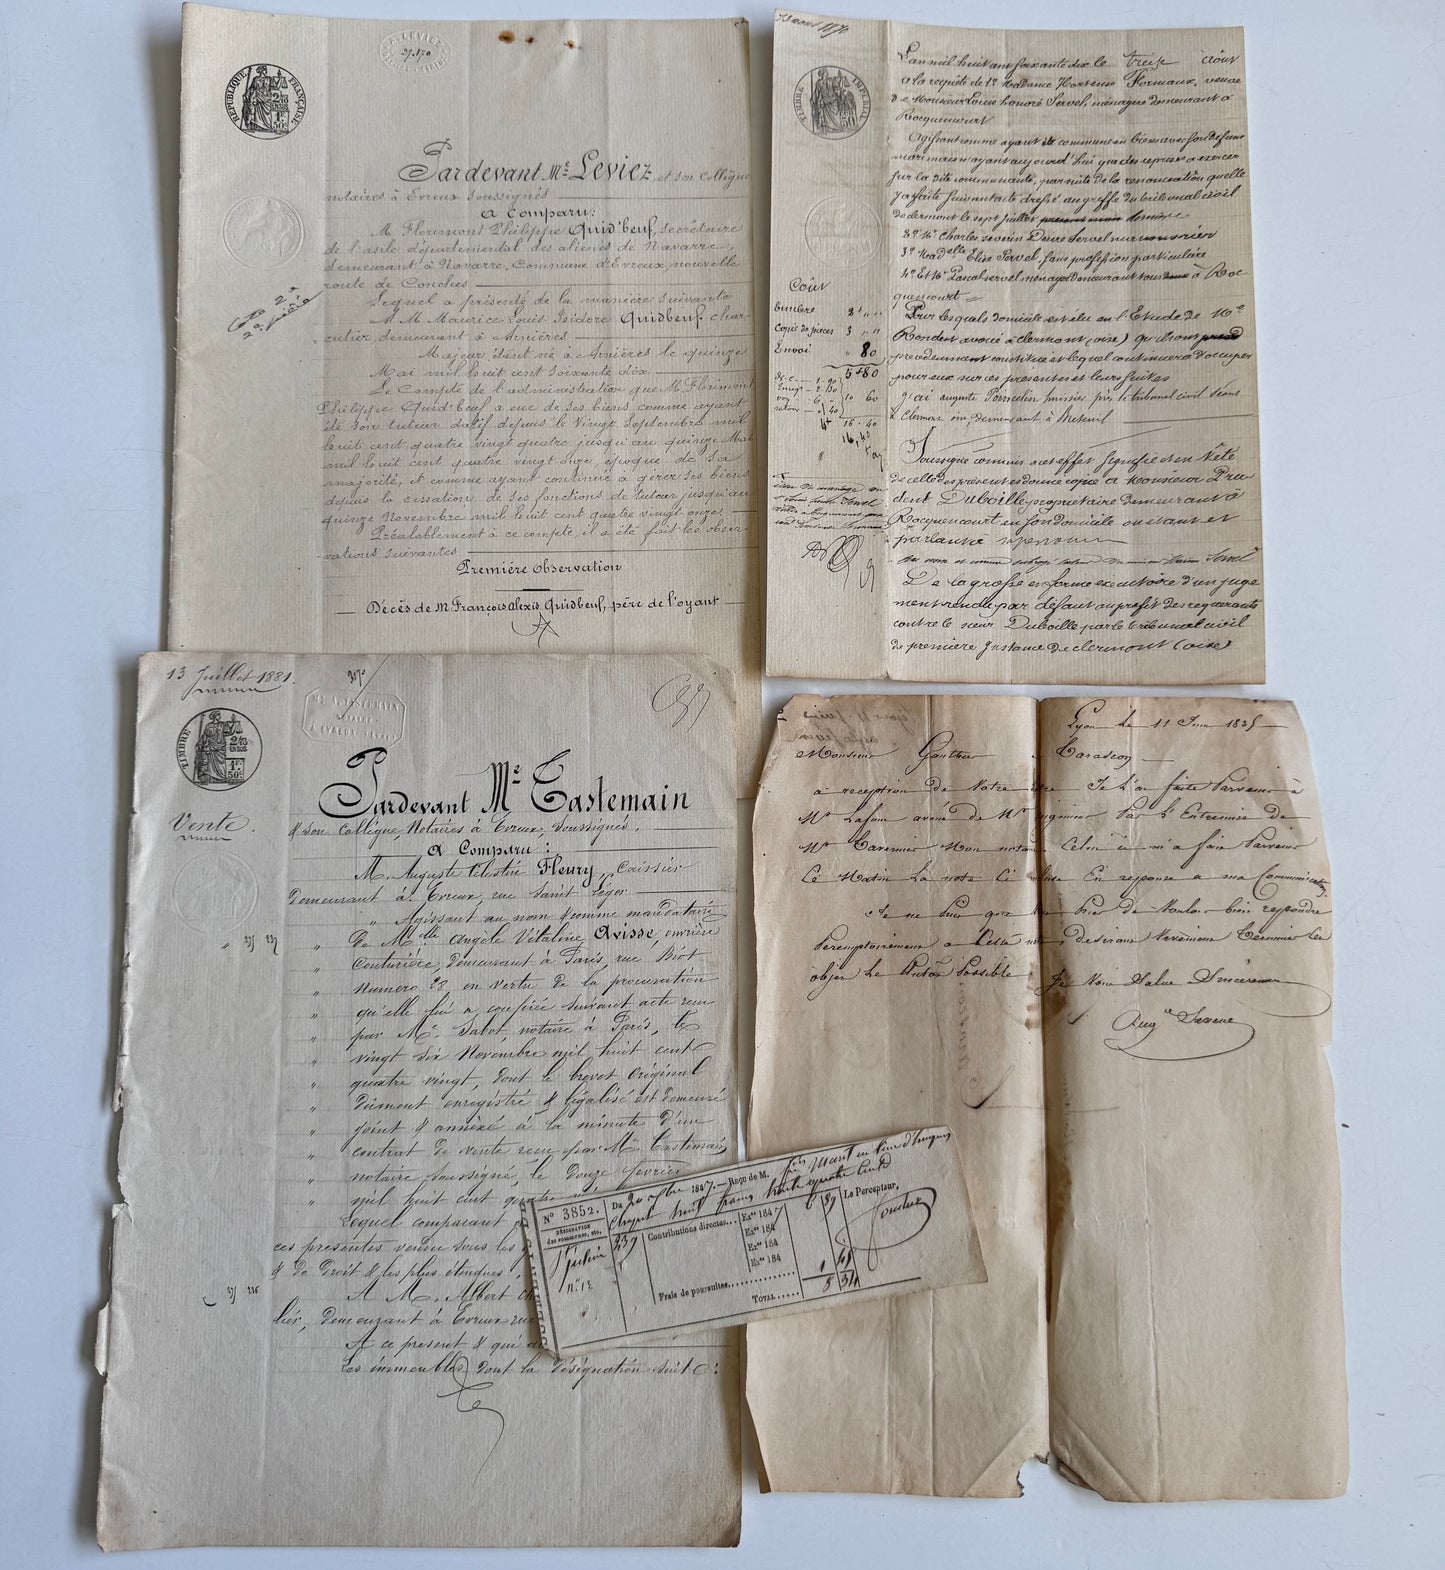 A. LEVIEZ
37.870
RÉPUBLIQUE FRANÇAISE
2/10 EN SUS
1F. 50c.
Pardevant Me Leviez, et son Collègue
notaires à Evreux soussignés
A Comparu:
M. Florimont Philippe Quid'beuf, secrétaire
de l'asile départemental des aliénés de Navarre,
demeurant à Navarre, Commune d'Evreux, nouvelle
route de Conches
Lequel a présenté de la manière suivante
A M. Maurice Louis Isidore Quidbeuf, char-
cutier, demeurant à Asnières
Majeur étant né à Asnières le quinze
Mai mil huit cent soixante dix
Le Compte de l'administration que M. Florimont
Philippe Quid'beuf a eue de ses biens comme ayant
été son tuteur datif depuis le Vingt Septembre mil
huit cent quatre vingt quatre jusqu'au quinze Mai
mil huit cent quatre vingt onze, époque de sa
majorité, et comme ayant continué à gérer ses biens
depuis la cessation de ses fonctions de tuteur jusqu'au
quinze Novembre mil huit cent quatre vingt onze
Préalablement à ce compte, il a été fait les obser-
-vations suivantes
Première observation
Décès de M. François Alexis Quidbeuf, père de l'oyant
13 août 1870
TIMBRE IMPÉRIAL
50
L'an mil huit cent soixante dix le treize Août
A la requête de 1° Madame Hortense Formaux, veuve
de Monsieur Louis honoré Servel, ménagère demeurant à
Rocquencourt
Agissant comme ayant été commune en biens avec son défunt
mari mais n'ayant aujourd'hui que des reprises à exercer
sur la dite communauté, par suite de la renonciation qu'elle
y a faite suivant acte dressé au greffe du tribunal civil
de clermont le sept juillet dernier
2° Mr Charles Severin Désiré Servel manouvrier
3° Madelle Elisa Servel, sans profession particulière
4° Et Mr Pascal servel ménager demeurant tous à Roc
quencourt
Pour lesquels domicile est élu en l'Etude de Me
Rondent avoué à clermont (oise) qu'ils ont
précédemment constitué et lequel continuera d'occuper
pour eux sur ces présentes et leurs suites
J'ai auguste Poincelin huissier près le tribunal civil séant
à Clermont oise, demeurant à Breteuil
Soussigné commis à cet effet signifié et en tête
de celle des présentes donné copie à Monsieur Pru
dent Duboille propriétaire demeurant à
Rocquencourt en son domicile où étant et
parlant à sa personne
De la grosse en forme exécutoire d'un juge
ment rendu par défaut au profit des requérants
contre le sieur Duboille par le tribunal civil
de première Instance de clermont (oise)
Coût
Timbre 2
Copie de pièces 3
Envoi 80
5 80
10 60
16.40
16,40
13 Juillet 1881.
TIMBRE
2/10 EN SUS
1F. 50c.
Vente.
Pardevant Me Castemain
& son Collègue Notaires à Evreux, soussignés.
A Comparu:
M. Auguste Célestin Fleury, Caissier
Demeurant à Evreux, rue Saint Léger
Agissant au nom & comme mandataire
De Melle Angèle Vitaline Avisse, ouvrière
Couturière, demeurant à Paris, rue Biot
Numéro 28, en vertu de la procuration
qu'elle lui a conférée suivant acte reçu
par Me Sabot, notaire à Paris, le
vingt six Novembre mil huit cent
quatre vingt, dont le brevet original
dûment enregistré & légalisé est demeuré
joint & annexé à la minute d'un
contrat de vente reçu par Me Castemain,
notaire soussigné, le douze février
mil huit cent quatre
Lequel comparant
ces présentes vendu sous les
& de Droit & les plus étendues,
A M. Albert
lier, demeurant à Evreux rue
A ce présent & qui
Les immeubles dont la désignation suit:
Lyon Le 11 Juin 1835
Monsieur Gauthier à Tarascon
à réception de votre lettre Je l'ai faite Parvenir à
Mr Lafont avoué de Mr Par l'Entremise de
Mr Tavernier Mon notaire Celui ci m'a fait Parvenir
Ce Matin La note Ci incluse En réponse a ma Communication,
Je ne Puis que Vous Prier de Vouloir bien répondre
Péremptoirement a Cette note, desirant Vivement Terminer Cet
objet Le Plutôt Possible Je Vous Salue Sincèrement
Augte Severe
No 3852.
DÉSIGNATION
des communes, etc.
St Julien
n° 13
239
Du 20 9bre 1847. — Reçu de M.
huit francs trente quatre cent
Contributions directes...
Exce 1847
Exce 184
Exce 184
Exce 184
Frais de poursuites
TOTAL
8 34
Le Percepteur,